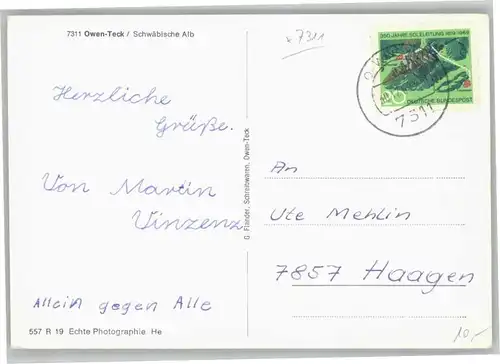 7311 Owen-Teck / Schwäbische Alb
* 7311
350 JAHRE SOLELEITUNG 1619-1969
DEUTSCHE BUNDESPOST
7311
Herzliche
Grüße.
Von Martin
Vinzenz
Allein gegen Alle
557 R 19 Echte Photographie He
Schreibwaren, Owen-Teck
An
Ute Mehlin
7857 Haagen
10,-